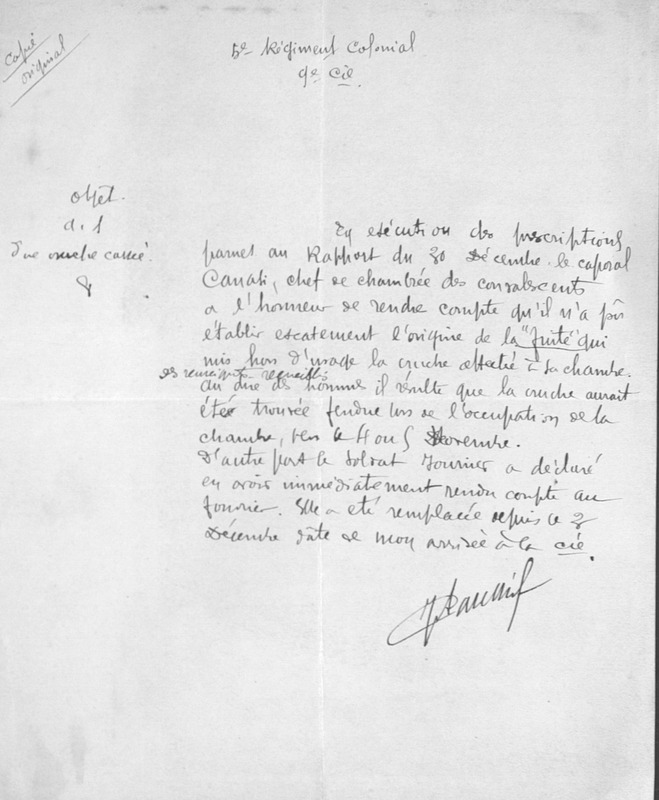 copié
original
5e Régiment Colonial
9e Cie.
Objet
d'une cruche cassée.
En exécution des prescriptions
parues au Rapport du 30 Décembre le caporal
Canati, chef de chambrée des convalescents
a l'honneur de rendre compte qu'il n'a pû
établir exatement l'origine de la "fuite" qui
mis hors d'usage la cruche affectée à sa chambre.
des renseigts recueillis
au dire des hommes il résulte que la cruche aurait
étée trouvée fendue lors de l'occupation de la
chambre, vers le 4 ou 5 Novembre.
D'autre part le soldat Journier a déclaré
en avoir immédiatement rendu compte au
fourrier. Elle a été remplacée depuis le 3
Décembre date de mon arrivée à la cie.